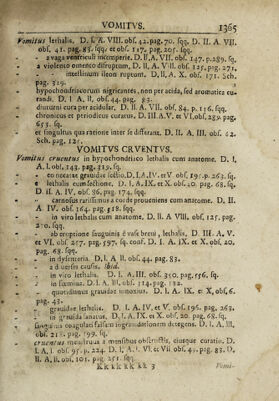 VOMITUS. 1365
Vomitus lethalis. D. I. A. VIII. obs. 42. pag. 70. sqq. D. II. A. VII.
obs. 41. pag. 85. sqq. et obs. 117. pag. 205. sqq.
- - a vaga ventriculi incontperie. D. I. A. VII. obs. 147. p. 289. sq.
- - a violento omento disruptum, D. II, A. VIII. obs. 125. pag. 271.
- - intestinum ileon ruptum. D. II, A. X. obs. 171. Sch.
pag. 319.
- hypochondriacorum nigricantes, non per acida, sed aromatica cu-
randi. D. I A, II, obs. 44. pag. 83.
- diuturni cura per acidular. D. II. A. VII. obs. 84. p. 156. sqq.
- chronicus et periodicus curatus, D. III A. V. et VI, obs. pag.
655. sq.
- et singultus qua ratione inter se differant. D. II. A. III. obs. 62.
Sch. pag. 125.
VOMITUS CRVENTVS.
Vomitus cruentus in hypochondriaco lethalis cum anatome. D. I,
A. I. obs. 143. pag. 319. sq.
- - et lethalis cum sectione. D. I, A. IX. et X. obs. 20. pag. 68. sq.
D. II. A. IV. obs. 86. pag. 174. sqq.
- - carnosus rarissimus a corde proueniens cum anatome. D. II.
A. IV. obs. 164. pag. 318. sqq.
- - in viro lethalis cum anatome. D. II. A VIII. obs. 125. pag.
270. sqq.
- - ab eruptione sanguinis e vase brevi, lethalis, D. III. A. V.
et VI. obs. 257. pag. 597. sq. conf. D. I. A. IX. et X. obs. 20.
pag. 68. sqq.
- - in dysenteria. D. I, A. II. obs. 44. pag. 83.
- - aduersus eius. ibid.
- - in viro lethalis. D. I. A. III. obs. 350. pag. 556. sq.
- - in foemina. D. I. A. III. obs. 214. pag. 132.
- - quotidianus grauidae innoxius. D. I. A. IX. et X. obs. 6.
pag. 43.
- - grauidae lethalis. D. I. A. IV. et V. obs. 196. pag. 263.
- - in grauida sanatus. D. I, A. IX et X. obs. 20. pag. 68. sq.
- sanguinis coagulati sagittam ingraviditionem detegens. D. I. A. III.
obs. 211. pag. 199. sq.
- cruentus menstruus a mensibus obstructis, eiusque curatio. D.
I. A. I. obs. 95. p. 224. D. I, A. VI. et VII obs. 43. pag. 83. D.
II. A, II. obs. 101. pag. 251. sq.
Kk kk kk kk 3 Vomi-